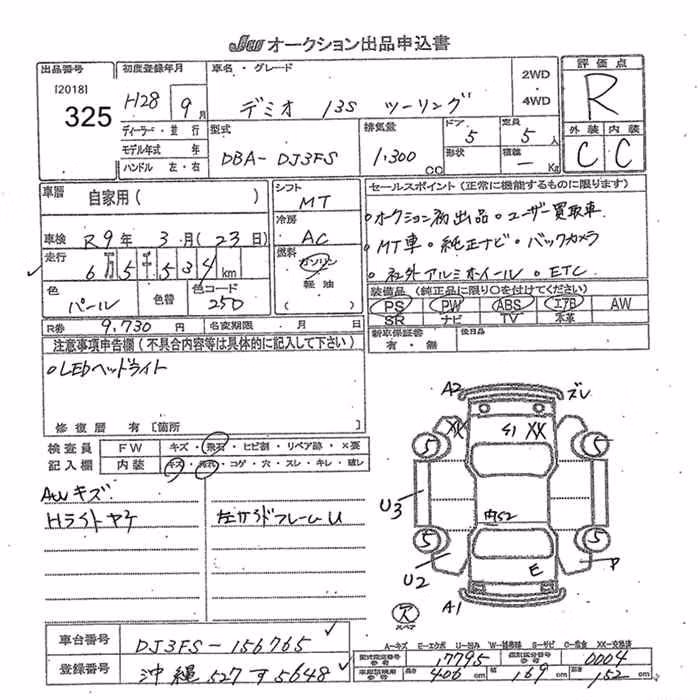 JU オークション出品申込書
出品番号 [2018] 325
初度登録年月 H28 9月
車名・グレード デミオ 13S ツーリング
2WD・4WD
評価点 R
外装 C 内装 C
ディーラー・並行
モデル年式 年
ハンドル 左・右
型式 DBA-DJ3FS
排気量 1,300 CC
ドア 5
形状
定員 5人
積載 - Kg
車歴 自家用( )
車検 R9年 3月(23日)
走行 6万5千534km
色 パール 色替 色コード 25D
R券 9,730円
名変期限 月 日
シフト MT
冷房 AC
燃料 ガソリン 軽油
( )
セールスポイント(正常に機能するものに限ります)
・オークション初出品・ユーザー買取車
・MT車・純正ナビ・バックカメラ
・社外アルミホイール・ETC
装備品(純正品に限り○を付けてください)
PS PW ABS エアB AW
SR ナビ TV 本革
新車保証書 有・無
後日品
注意事項申告欄(不具合内容等は具体的に記入して下さい)
○LEDヘッドライト
修復歴 有〔箇所 〕
検査員記入欄
FW キズ・飛石・ヒビ割・リペア跡・×要
内装 キズ・汚れ・コゲ・穴・スレ・キレ・破レ
AWキズ
Hライトヤケ
左サイドフレームU
A2 ズレ
XX S1 XX
5 5
U3
内S2
5 5
U2 E P
A1
スペア
車台番号 DJ3FS-156765
登録番号 沖縄 527 す 5648
A-キズ E-エクボ U-凹み W-補修跡 S-サビ C-腐食 XX-交換済
型式指定番号 参考 17795
類別区分番号 参考 0004
車両諸規格 参考 長さ 406cm 幅 169cm 高さ 152cm